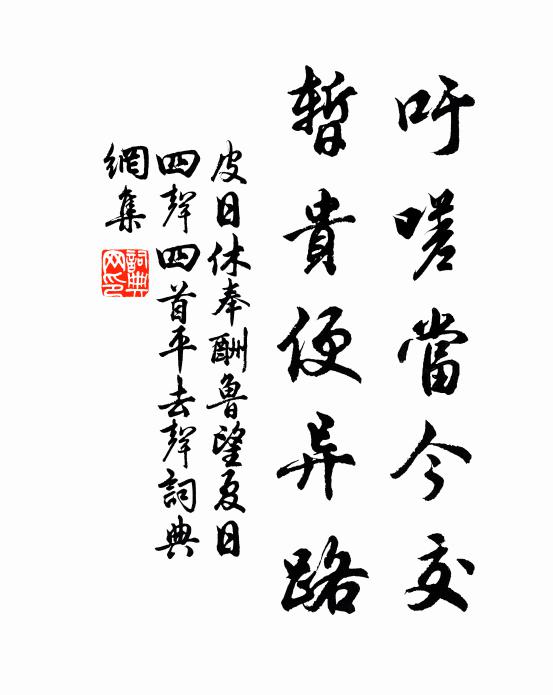 吁嗟當今交
暫貴便异路
皮日休奉酬魯望夏日
四聲四首平去聲詞典
網集
詞典网印